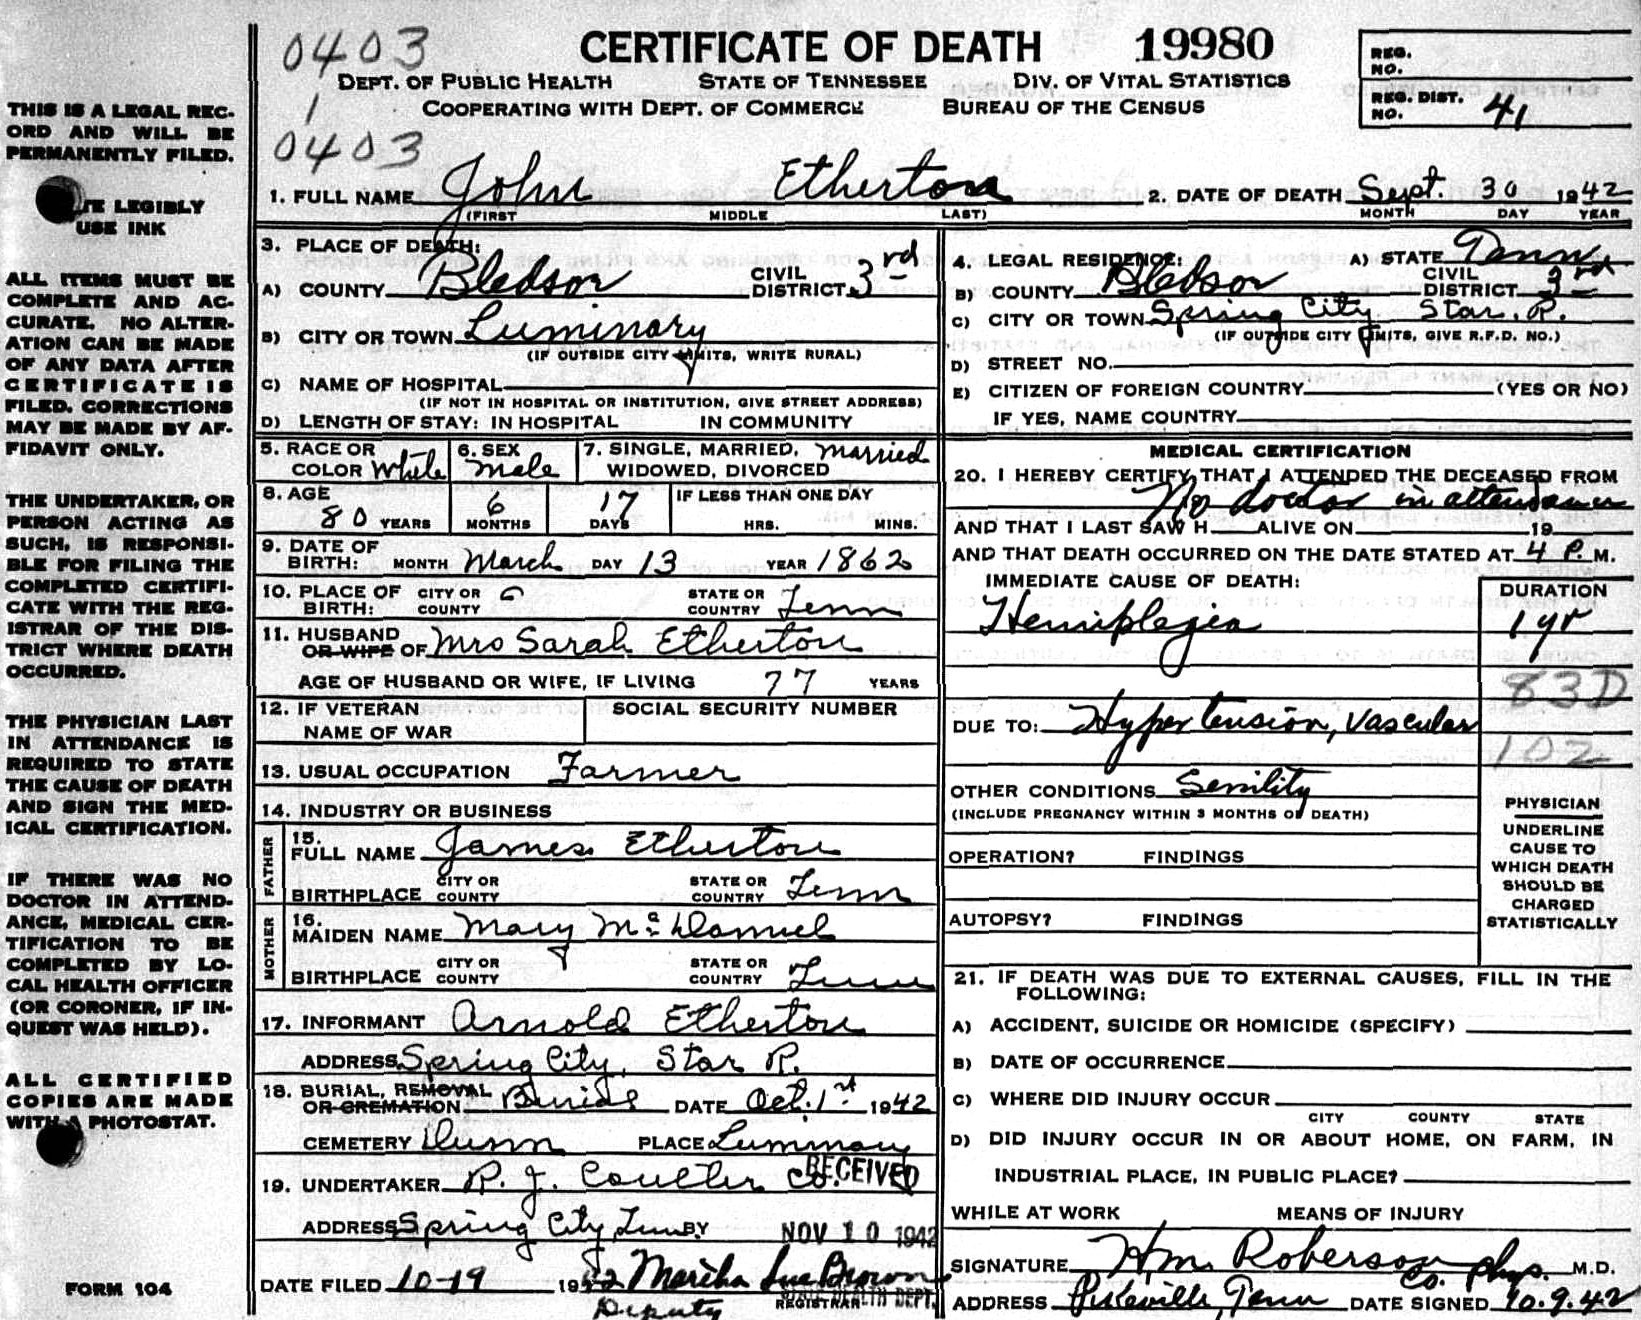 0403
CERTIFICATE OF DEATH 19980
DEPT. OF PUBLIC HEALTH STATE OF TENNESSEE DIV. OF VITAL STATISTICS
1 COOPERATING WITH DEPT. OF COMMERCE BUREAU OF THE CENSUS
REG. NO.
REG. DIST. NO. 41
0403
1. FULL NAME John Etherton 2. DATE OF DEATH Sept. 30 1942
(FIRST MIDDLE LAST) MONTH DAY YEAR
THIS IS A LEGAL REC-
ORD AND WILL BE
PERMANENTLY FILED.
LEGIBLY
USE INK
ALL ITEMS MUST BE
COMPLETE AND AC-
CURATE. NO ALTER-
ATION CAN BE MADE
OF ANY DATA AFTER
CERTIFICATE IS
FILED. CORRECTIONS
MAY BE MADE BY AF-
FIDAVIT ONLY.
THE UNDERTAKER, OR
PERSON ACTING AS
SUCH, IS RESPONSI-
BLE FOR FILING THE
COMPLETED CERTIFI-
CATE WITH THE REG-
ISTRAR OF THE DIS-
TRICT WHERE DEATH
OCCURRED.
THE PHYSICIAN LAST
IN ATTENDANCE IS
REQUIRED TO STATE
THE CAUSE OF DEATH
AND SIGN THE MED-
ICAL CERTIFICATION.
IF THERE WAS NO
DOCTOR IN ATTEND-
ANCE, MEDICAL CER-
TIFICATION TO BE
COMPLETED BY LO-
CAL HEALTH OFFICER
(OR CORONER, IF IN-
QUEST WAS HELD).
ALL CERTIFIED
COPIES ARE MADE
WITH A PHOTOSTAT.
FORM 104
3. PLACE OF DEATH:
A) COUNTY Bledsor CIVIL DISTRICT 3rd
B) CITY OR TOWN Luminary
(IF OUTSIDE CITY LIMITS, WRITE RURAL)
C) NAME OF HOSPITAL
(IF NOT IN HOSPITAL OR INSTITUTION, GIVE STREET ADDRESS)
D) LENGTH OF STAY: IN HOSPITAL IN COMMUNITY
4. LEGAL RESIDENCE: A) STATE Tenn
B) COUNTY Bledsor CIVIL DISTRICT 3rd
C) CITY OR TOWN Spring City Star. R.
(IF OUTSIDE CITY LIMITS, GIVE R.F.D. NO.)
D) STREET NO.
E) CITIZEN OF FOREIGN COUNTRY (YES OR NO)
IF YES, NAME COUNTRY
5. RACE OR COLOR White 6. SEX Male 7. SINGLE, MARRIED, WIDOWED, DIVORCED Married
8. AGE 80 YEARS 6 MONTHS 17 DAYS IF LESS THAN ONE DAY HRS. MINS.
9. DATE OF BIRTH: MONTH March DAY 13 YEAR 1862
10. PLACE OF BIRTH: CITY OR COUNTY STATE OR COUNTRY Tenn
11. HUSBAND OR WIFE OF Mrs Sarah Etherton
AGE OF HUSBAND OR WIFE, IF LIVING 77 YEARS
12. IF VETERAN NAME OF WAR SOCIAL SECURITY NUMBER
13. USUAL OCCUPATION Farmer
14. INDUSTRY OR BUSINESS
FATHER
15. FULL NAME James Etherton
BIRTHPLACE CITY OR COUNTY STATE OR COUNTRY Tenn
MOTHER
16. MAIDEN NAME Mary McDamiel
BIRTHPLACE CITY OR COUNTY STATE OR COUNTRY Tenn
17. INFORMANT Arnold Etherton
ADDRESS Spring City, Star R.
18. BURIAL, REMOVAL OR CREMATION Burial DATE Oct. 1st 1942
CEMETERY Dunn PLACE Luminary
19. UNDERTAKER R. J. Coulter Co. RECEIVED
ADDRESS Spring City, Tenn BY NOV 10 1942
DATE FILED 10-19 1942 Martha Sue Brown
Deputy REGISTRAR STATE HEALTH DEPT.
MEDICAL CERTIFICATION
20. I HEREBY CERTIFY THAT I ATTENDED THE DECEASED FROM
No doctor in attendance
AND THAT I LAST SAW H ALIVE ON 19
AND THAT DEATH OCCURRED ON THE DATE STATED AT 4 P. M.
IMMEDIATE CAUSE OF DEATH: DURATION
Hemiplegia 1 yr
83D
DUE TO: Hypertension, Vascular
102
OTHER CONDITIONS Senility
(INCLUDE PREGNANCY WITHIN 3 MONTHS OF DEATH)
OPERATION? FINDINGS
AUTOPSY? FINDINGS
PHYSICIAN
UNDERLINE
CAUSE TO
WHICH DEATH
SHOULD BE
CHARGED
STATISTICALLY
21. IF DEATH WAS DUE TO EXTERNAL CAUSES, FILL IN THE
FOLLOWING:
A) ACCIDENT, SUICIDE OR HOMICIDE (SPECIFY)
B) DATE OF OCCURRENCE
C) WHERE DID INJURY OCCUR
CITY COUNTY STATE
D) DID INJURY OCCUR IN OR ABOUT HOME, ON FARM, IN
INDUSTRIAL PLACE, IN PUBLIC PLACE?
WHILE AT WORK MEANS OF INJURY
SIGNATURE Wm. Roberson Co. Phys. M.D.
ADDRESS Pikeville, Tenn DATE SIGNED 10.9.42